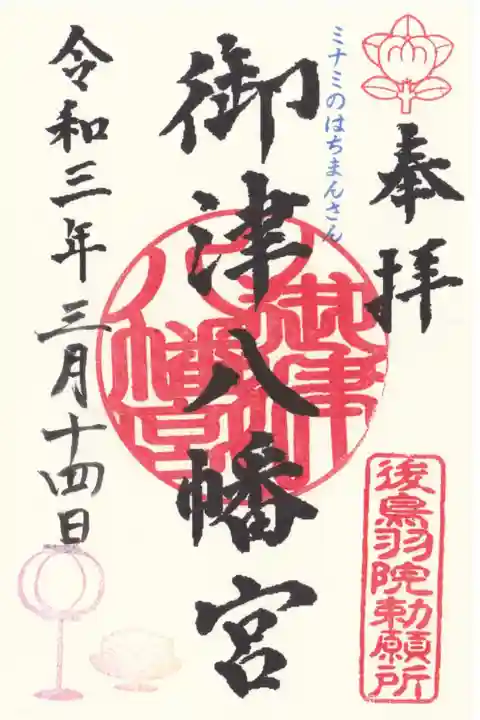 奉拝
後鳥羽院勅願所
ミナミのはちまんさん
御津八幡宮
御津八幡宮
令和三年三月十四日